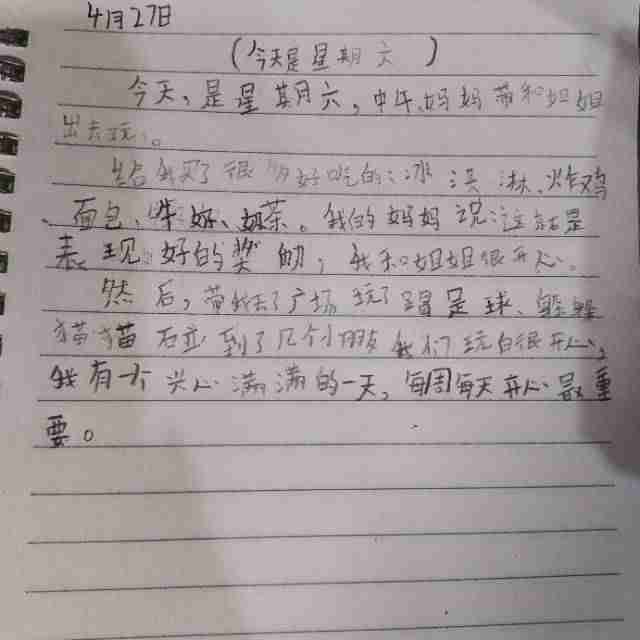 4月27日
(今天是星期六)
今天、是星期六，中午、妈妈带和姐姐
出去玩。
给我买了很多好吃的、冰淇淋、炸鸡
、面包、牛奶、奶茶。我的妈妈说：这就是
表现好的奖励，我和姐姐很开心。
然后，带我去了广场玩了踢足球、
猫猫 到了几个小朋友我们玩的很开心，
我有一个兴心满满的一天，每周每天开心最重
要。